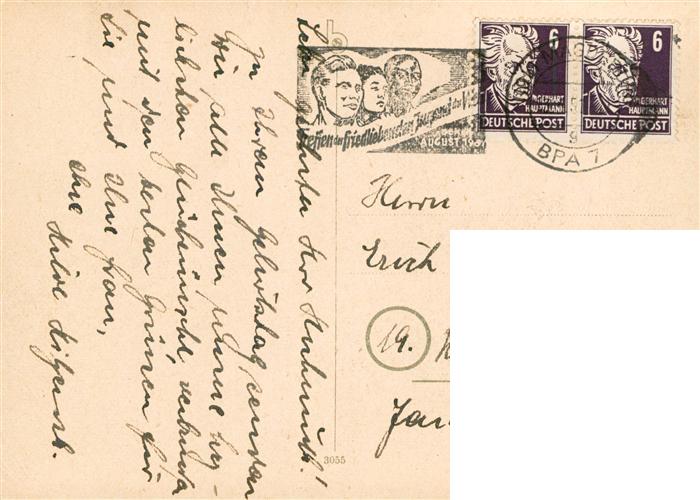 Sehr geehrter Herr
Zu Ihrem Geburtstag senden
wir alle Ihnen unsere herz-
lichsten Glückwünsche, verbunden
mit den besten Grüssen für
Sie und Ihre Frau,
Ihre Hilde
Treffen der friedliebenden Jugend der
AUGUST 1951
6
GERHART
HAUPTMANN
DEUTSCHE POST
6
GERHART
HAUPTMANN
DEUTSCHE POST
BPA 7
Herrn
Erich
19.
3055